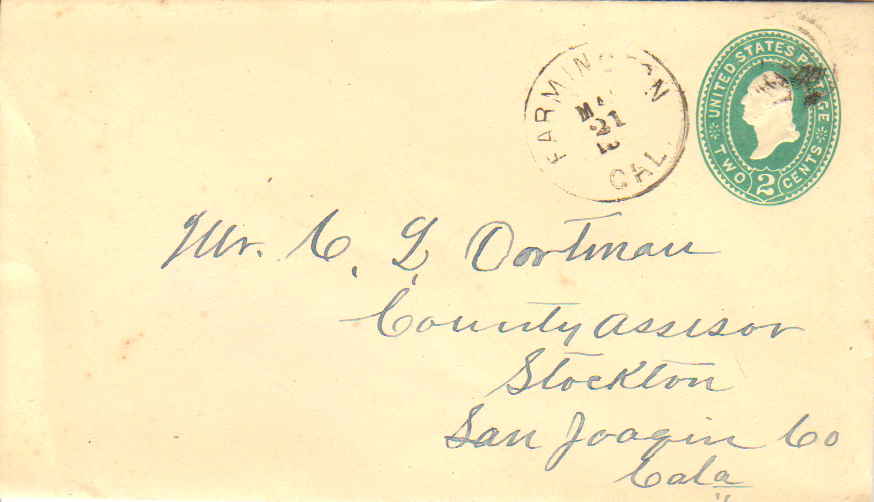 FARMINGTON
21
CAL.
UNITED STATES POSTAGE
TWO 2 CENTS
Mr. C. L. Oortman
County Assissor
Stockton
San Joaqin Co
Cala